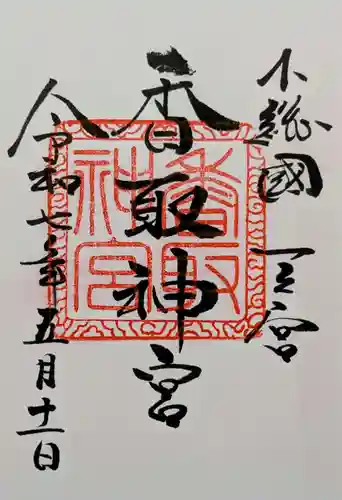 下総國一之宮
香取神宮
香取神宮
令和七年五月十一日